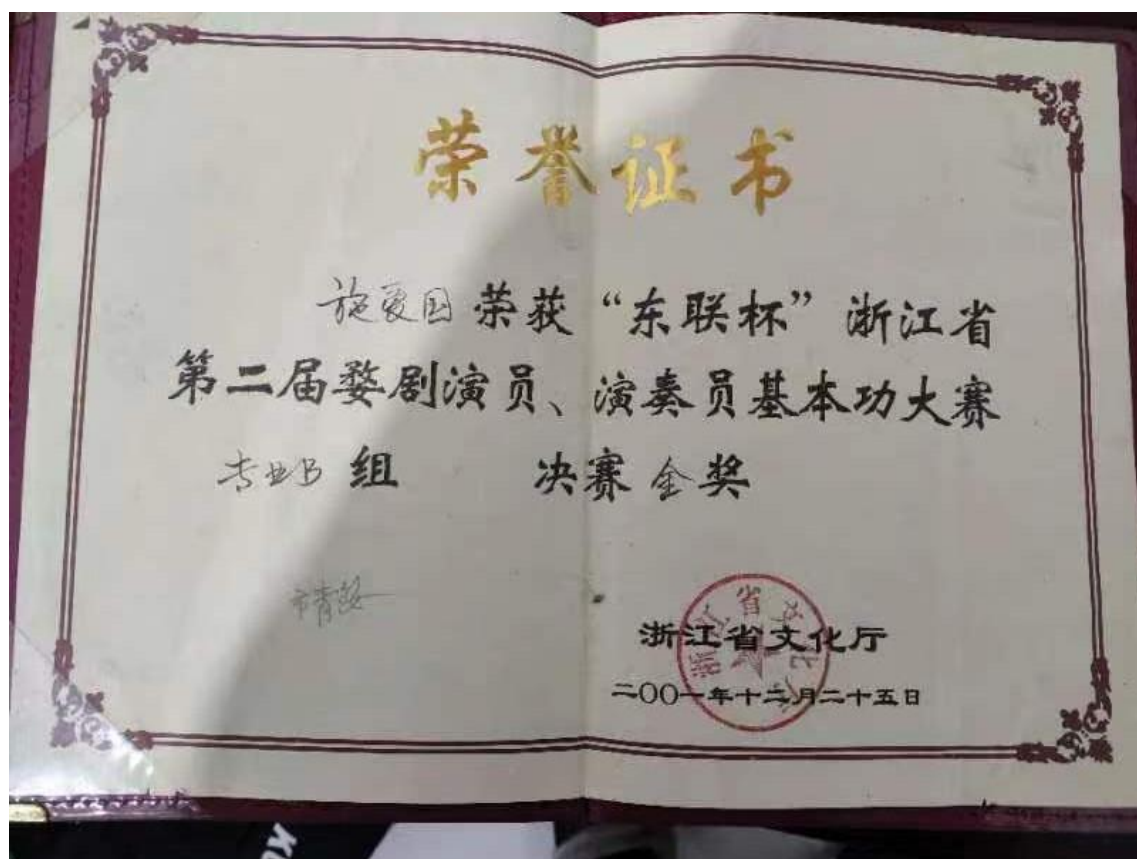 荣誉证书
施夏国荣获“东联杯”浙江省
第二届婺剧演员、演奏员基本功大赛
专业B组 决赛金奖
市青婺
浙江省文化厅
二〇〇一年十二月二十五日